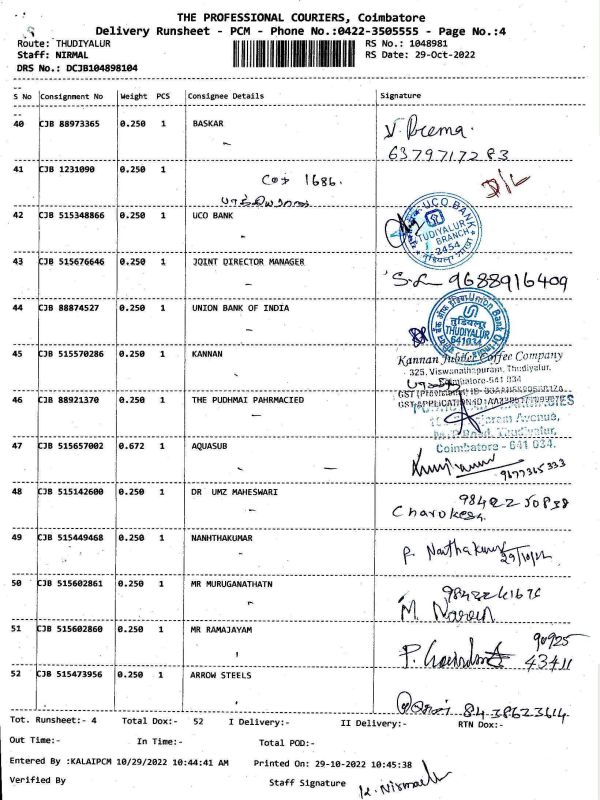 THE PROFESSIONAL COURIERS, Coimbatore
Delivery Runsheet - PCM - Phone No.:0422-3505555 - Page No.:4
Route: THUDIYALUR RS No.: 1048981
Staff: NIRMAL RS Date: 29-Oct-2022
DRS No.: DCJB104898104
S No Consignment No Weight PCS Consignee Details Signature
40 CJB 88973365 0.250 1 BASKAR
V. Prema.
6379717283
41 CJB 1231090 0.250 1
1686.
D/L
42 CJB 515348866 0.250 1 UCO BANK
UCO BANK
TUDIYALUR
BRANCH
2454
43 CJB 515676646 0.250 1 JOINT DIRECTOR MANAGER
9688916409
44 CJB 88874527 0.250 1 UNION BANK OF INDIA
Union Bank Of
THUDIYALUR
641034
45 CJB 515570286 0.250 1 KANNAN
Kannan Jubilee Coffee Company
325, Viswanathapuram, Thudiyalur,
Coimbatore-641 034
46 CJB 88921370 0.250 1 THE PUDHMAI PAHRMACIED
Avenue,
Coimbatore - 641 034.
47 CJB 515657002 0.672 1 AQUASUB
9677365333
48 CJB 515142600 0.250 1 DR UMZ MAHESWARI
49 CJB 515449468 0.250 1 NANHTHAKUMAR
29/10/22
50 CJB 515602861 0.250 1 MR MURUGANATHATN
51 CJB 515602860 0.250 1 MR RAMAJAYAM
90925
43411
52 CJB 515473956 0.250 1 ARROW STEELS
8438623614
Tot. Runsheet:- 4 Total Dox:- 52 I Delivery:- II Delivery:- RTN Dox:-
Out Time:- In Time:- Total POD:-
Entered By :KALAIPCM 10/29/2022 10:44:41 AM Printed On: 29-10-2022 10:45:38
Verified By Staff Signature